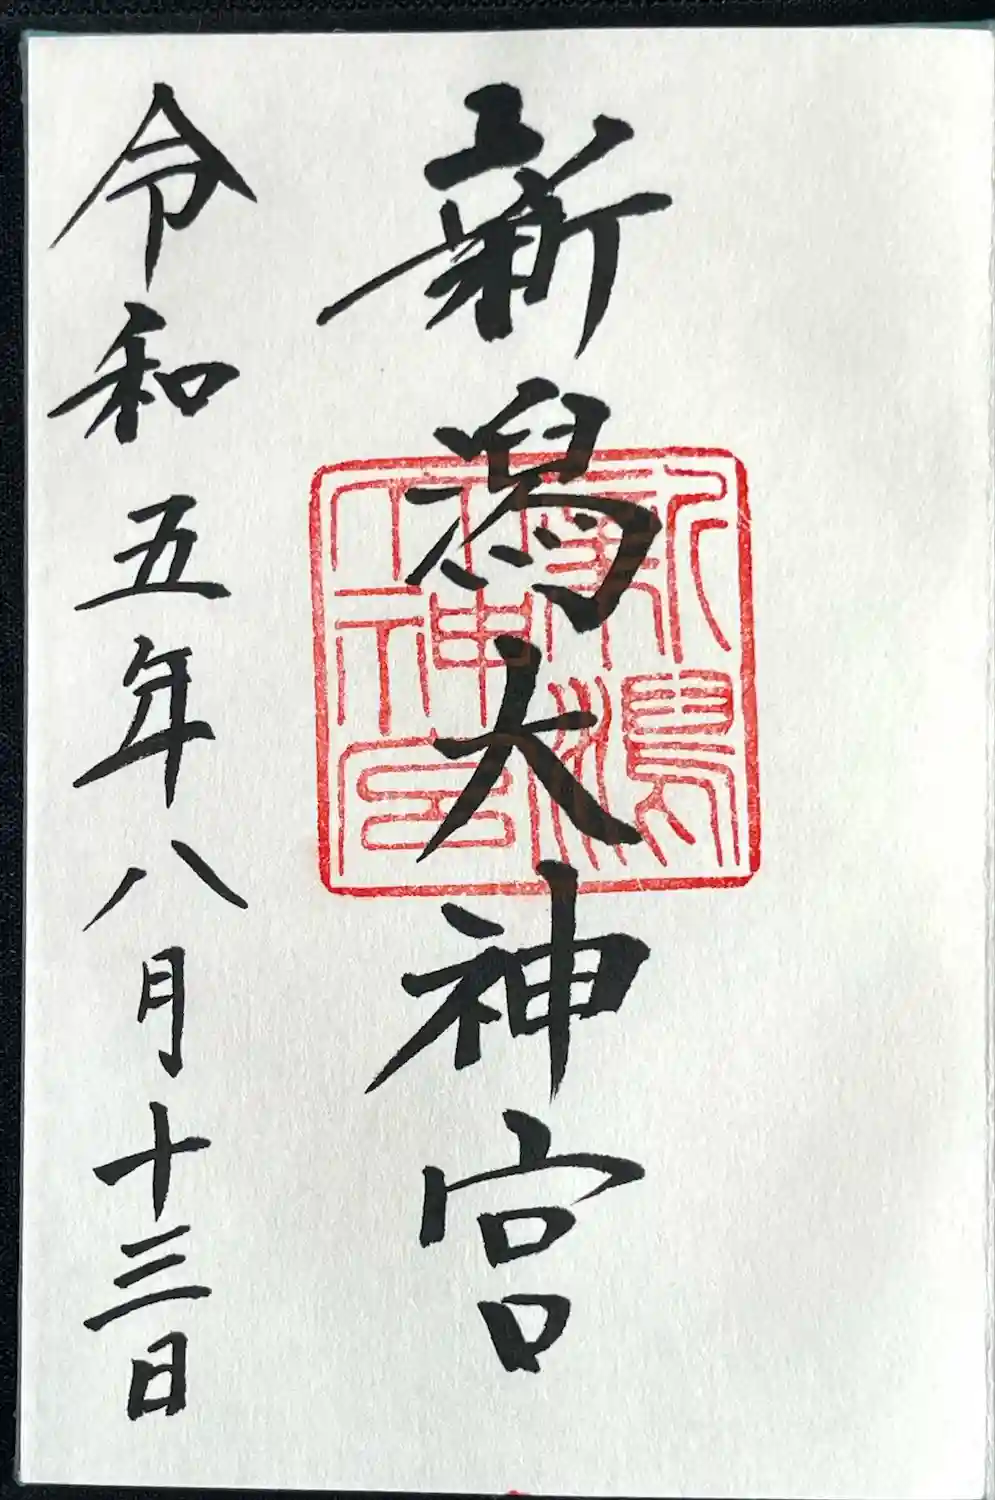 新潟大神宮
新潟大神宮
令和五年八月十三日